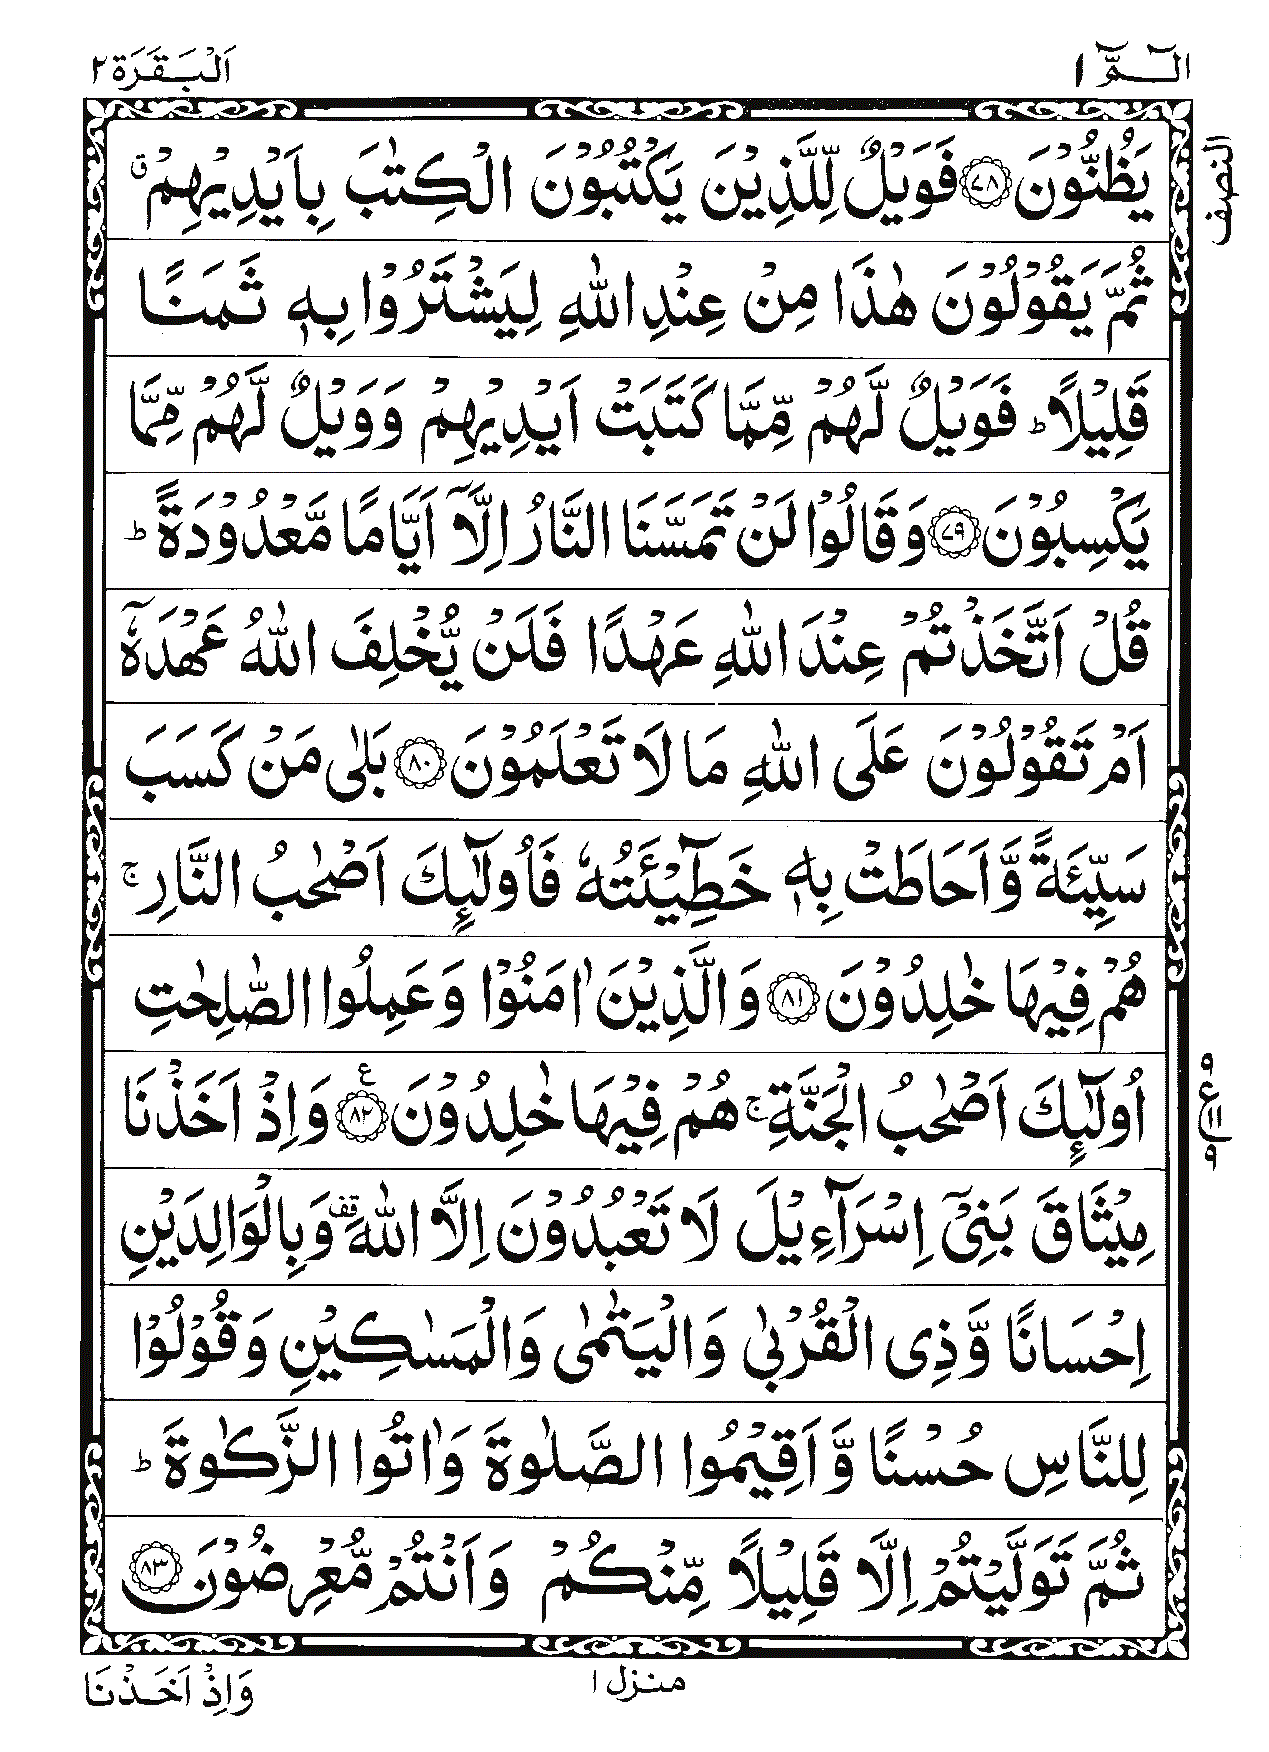 الٓمّٓ ١
اَلْبَقَرَة ٢
النصف
يَظُنُّوْنَ ﴿٧٨﴾ فَوَيْلٌ لِّلَّذِيْنَ يَكْتُبُوْنَ الْكِتٰبَ بِاَيْدِيْهِمْ ۗ
ثُمَّ يَقُوْلُوْنَ هٰذَا مِنْ عِنْدِ اللّٰهِ لِيَشْتَرُوْا بِهٖ ثَمَنًا
قَلِيْلًا ؕ فَوَيْلٌ لَّهُمْ مِّمَّا كَتَبَتْ اَيْدِيْهِمْ وَوَيْلٌ لَّهُمْ مِّمَّا
يَكْسِبُوْنَ ﴿٧٩﴾ وَقَالُوْا لَنْ تَمَسَّنَا النَّارُ اِلَّاۤ اَيَّامًا مَّعْدُوْدَةً ؕ
قُلْ اَتَّخَذْتُمْ عِنْدَ اللّٰهِ عَهْدًا فَلَنْ يُّخْلِفَ اللّٰهُ عَهْدَهٗۤ
اَمْ تَقُوْلُوْنَ عَلَى اللّٰهِ مَا لَا تَعْلَمُوْنَ ﴿٨٠﴾ بَلٰى مَنْ كَسَبَ
سَيِّئَةً وَّاَحَاطَتْ بِهٖ خَطِيْٓئَتُهٗ فَاُولٰٓئِكَ اَصْحٰبُ النَّارِ ۚ
هُمْ فِيْهَا خٰلِدُوْنَ ﴿٨١﴾ وَالَّذِيْنَ اٰمَنُوْا وَعَمِلُوا الصّٰلِحٰتِ
اُولٰٓئِكَ اَصْحٰبُ الْجَنَّةِ ۚ هُمْ فِيْهَا خٰلِدُوْنَ ﴿٨٢﴾ ع وَاِذْ اَخَذْنَا
٩ ع ٩
مِيْثَاقَ بَنِيْۤ اِسْرَآءِيْلَ لَا تَعْبُدُوْنَ اِلَّا اللّٰهَ قف وَبِالْوَالِدَيْنِ
اِحْسَانًا وَّذِى الْقُرْبٰى وَالْيَتٰمٰى وَالْمَسٰكِيْنِ وَقُوْلُوْا
لِلنَّاسِ حُسْنًا وَّاَقِيْمُوا الصَّلٰوةَ وَاٰتُوا الزَّكٰوةَ ؕ
ثُمَّ تَوَلَّيْتُمْ اِلَّا قَلِيْلًا مِّنْكُمْ وَاَنْتُمْ مُّعْرِضُوْنَ ﴿٨٣﴾
منزل ١
وَاِذْ اَخَذْنَا